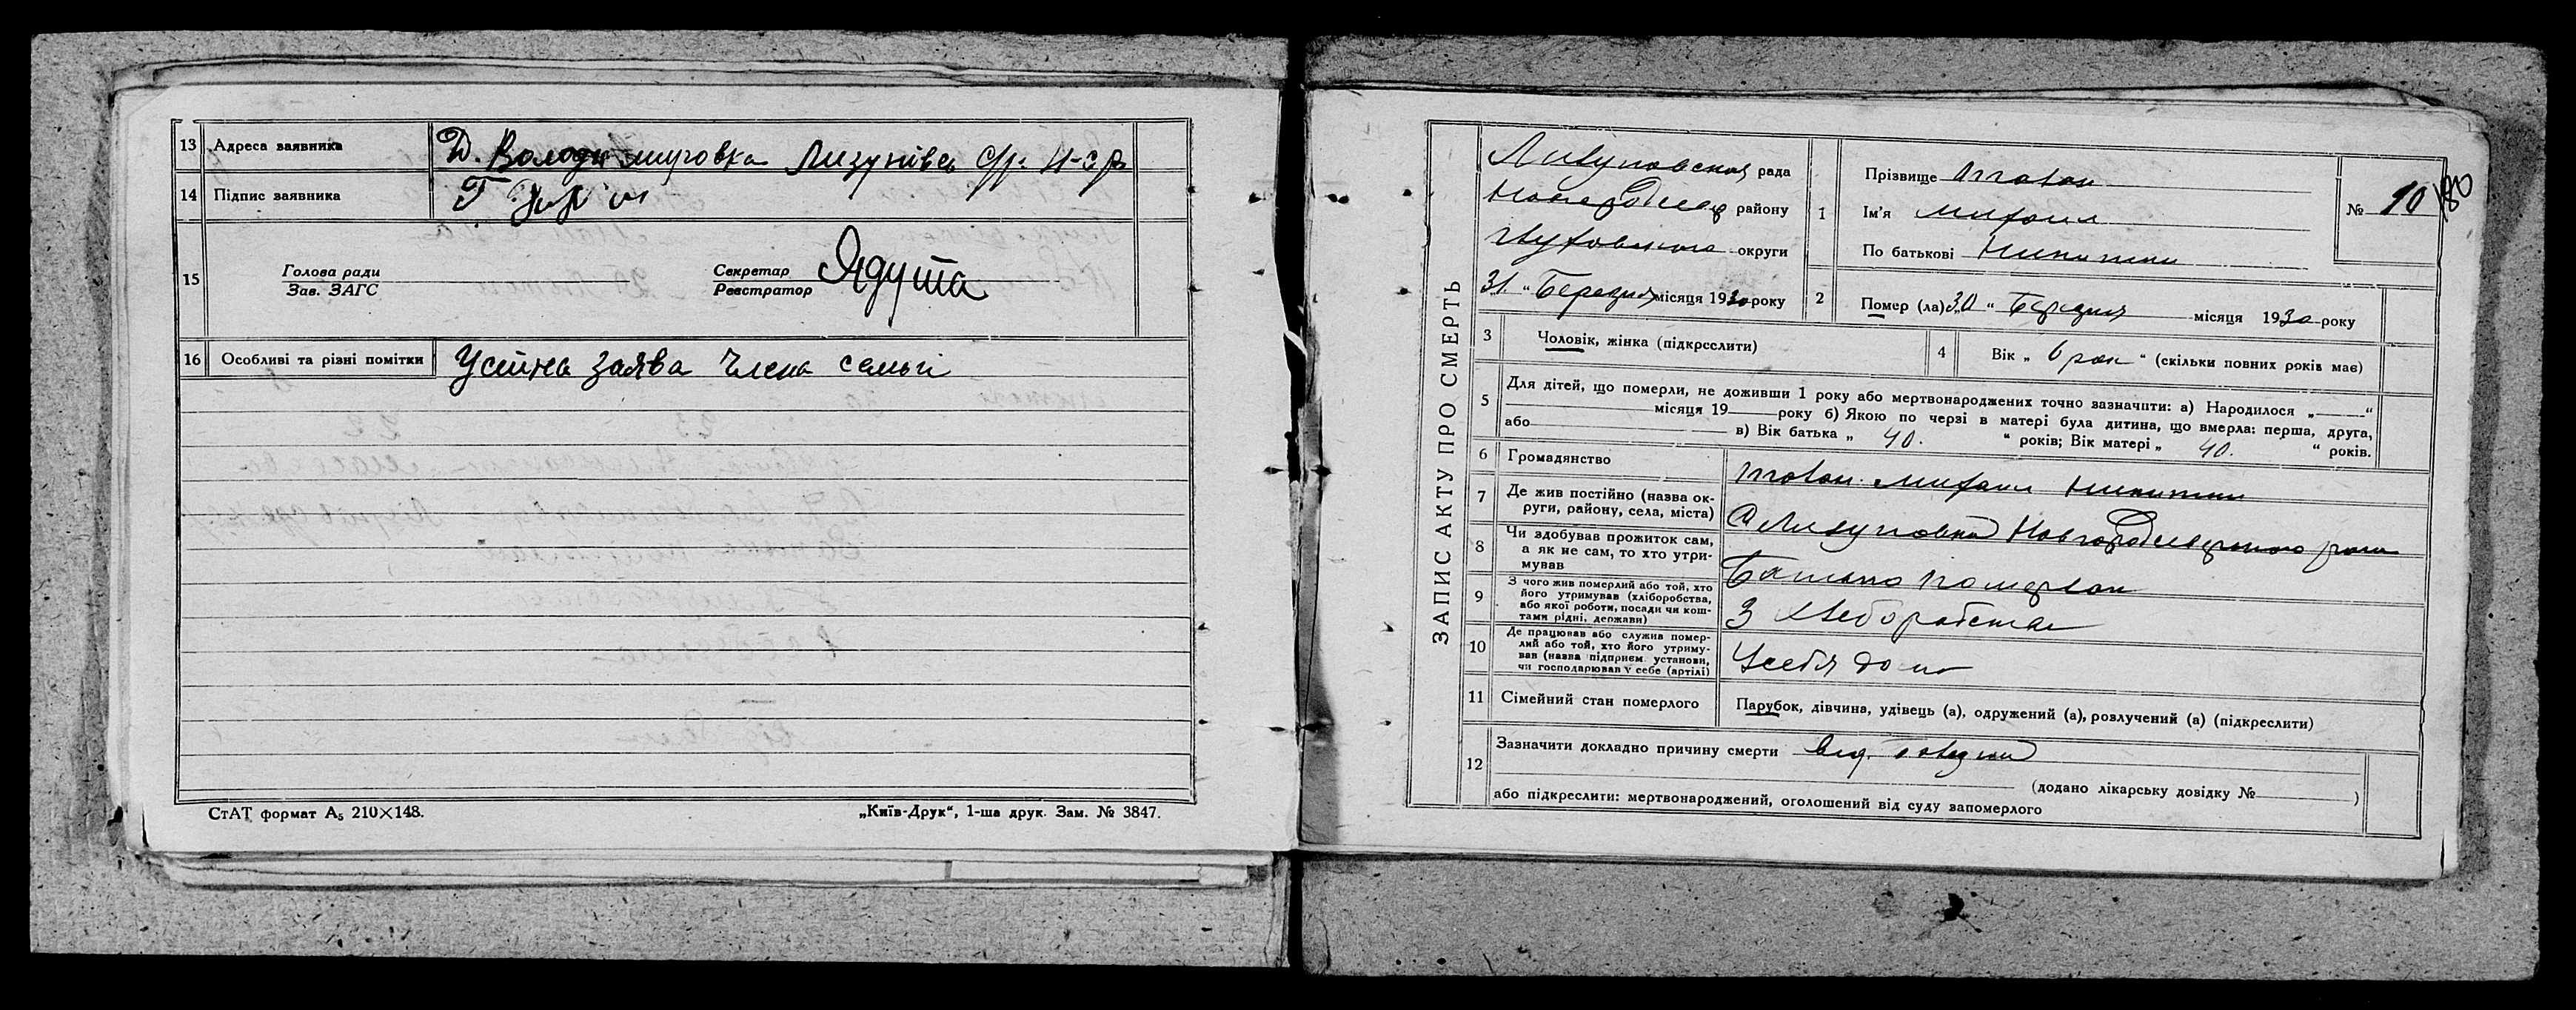 13 Адреса заявника Д. Володимировка Лизунівс с/р. Н-С р
14 Підпис заявника Г
15 Голова ради Зав. ЗАГС Секретар Реєстратор Ядута
16 Особливі та різні помітки Усатна заява Члена семьи
СтАТ формат А₅ 210×148. „Київ-Друк“, 1-ша друк. Зам. № 3847.
ЗАПИС АКТУ ПРО СМЕРТЬ
Лизуновская рада
району
округи
31 „ Березня місяця 1930 року
1 Прізвище
Ім'я Михаил
По батькові Никитин
№ 10
180
2 Помер (ла) „30“ Березня місяця 1930 року
3 Чоловік, жінка (підкреслити)
4 Вік „ 6 рок “ (скільки повних років має)
5 Для дітей, що померли, не доживши 1 року або мертвонароджених точно зазначити: а) Народилося „ “
місяця 19 року б) Якою по черзі в матері була дитина, що вмерла: перша, друга,
або в) Вік батька „ 40. “ років; Вік матері „ 40. “ років.
6 Громадянство Михаил Никитин
7 Де жив постійно (назва ок-
руги, району, села, міста) с Лизуновка Новгородсеверского рона
8 Чи здобував прожиток сам,
а як не сам, то хто утри-
мував Батько
9 З чого жив померлий або той, хто
його утримував (хліборобства,
або якої роботи, посади чи кош-
тами рідні, держави) З хлеборобства
10 Де працював або служив помер-
лий або той, хто його утриму-
вав (назва підприєм. установи,
чи господарював у себе (артілі) Усебя дома
11 Сімейний стан померлого Парубок, дівчина, удівець (а), одружений (а), розлучений (а) (підкреслити)
12 Зазначити докладно причину смерти
(додано лікарську довідку № )
або підкреслити: мертвонароджений, оголошений від суду запомерлого